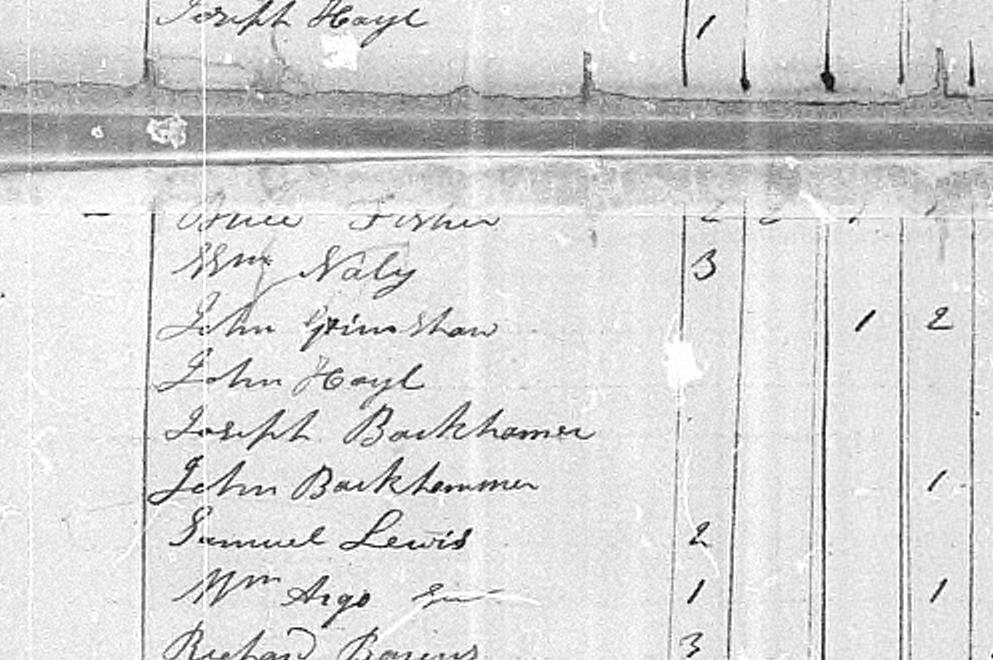 Joseph Hoyl 1
Fisher
Wm Naly 3
John Grimshaw 1 2
John Hoyl
Joseph Backhamer
John Backhammer 1
Samuel Lewis 2
Wm Argo 1 1
Richard 3